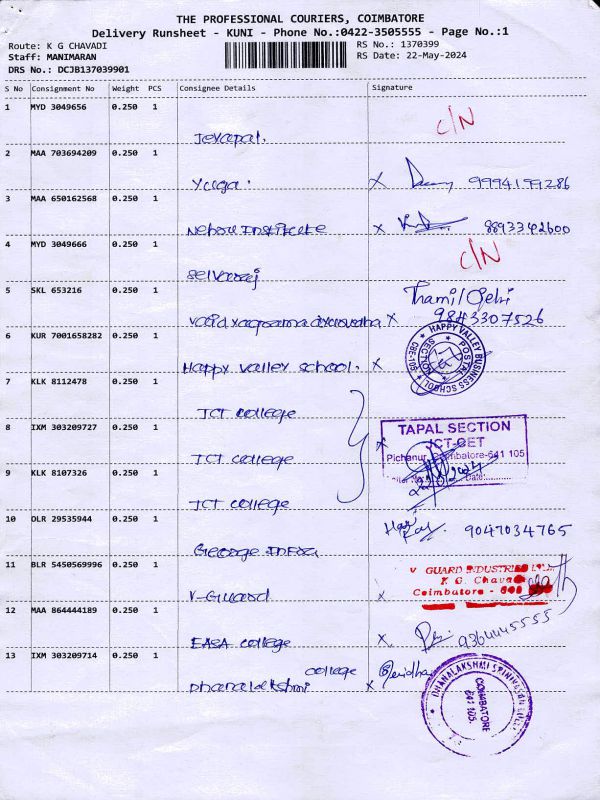 THE PROFESSIONAL COURIERS, COIMBATORE
Delivery Runsheet - KUNI - Phone No.:0422-3505555 - Page No.:1
Route: K G CHAVADI
RS No.: 1370399
Staff: MANIMARAN
RS Date: 22-May-2024
DRS No.: DCJB137039901
S No Consignment No Weight PCS Consignee Details Signature
1 MYD 3049656 0.250 1
C/N
Jeyapal.
2 MAA 703694209 0.250 1
Yuga. X 9994199286
3 MAA 650162568 0.250 1
Nehru Institute X 8893342600
4 MYD 3049666 0.250 1
C/N
Selvaraj
5 SKL 653216 0.250 1
Thamil Selvi
X 9843307526
6 KUR 7001658282 0.250 1
HAPPY VALLEY BUSINESS SCHOOL
POSTAL SECTION
CBE-105
Happy Valley School. X
7 KLK 8112478 0.250 1
JCT College
8 IXM 303209727 0.250 1
TAPAL SECTION
JCT-CET
Pichanur, Coimbatore-641 105
JCT College
9 KLK 8107326 0.250 1
Date:
JCT College
10 OLR 29535944 0.250 1
Hari
9047034765
George Infra
11 BLR 5450569996 0.250 1
V GUARD INDUSTRIES LTD.
K G. Chava
Coimbatore - 641
V-Guard X
12 MAA 864444189 0.250 1
EASA College X 9364445555
13 IXM 303209714 0.250 1
College
Dhanalakshmi X
DHANALAKSHMI SRINIVASAN
COIMBATORE
641 105.